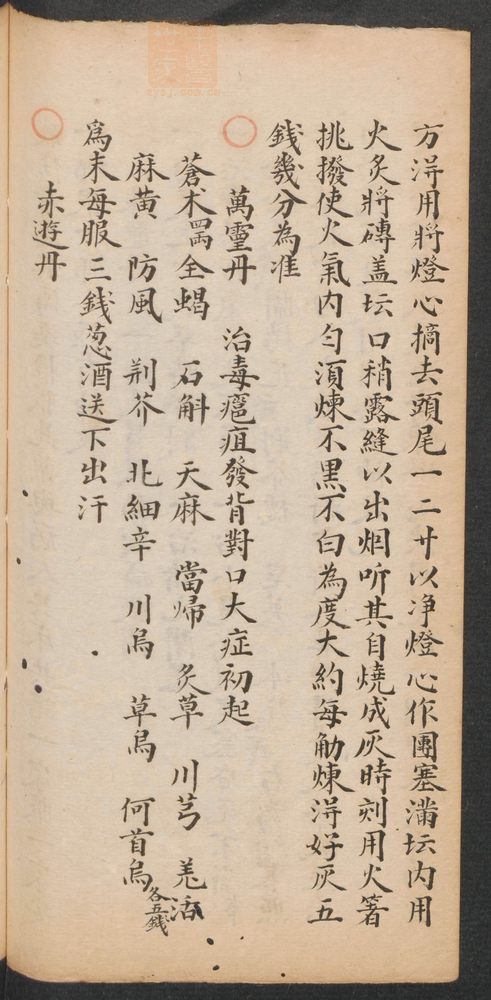 方浔用將燈心摘去頭尾一二寸以净燈心作團塞滿坛内用
火炙將磚盖坛口稍露縫以出烟听其自燒成灰時刻用火箸
挑撥使火氣内匀湏煉不黑不白為度大約每觔煉浔好灰五
錢幾分為准
○ 萬靈丹 治毒癰疽發背對口大症初起
蒼术四兩 全蝎 石斛 天麻 當帰 炙草 川芎 羌活
麻黄 防風 荆芥 北細辛 川烏 草烏 何首烏各五錢
為末每服三錢葱酒送下出汗
○ 赤遊丹